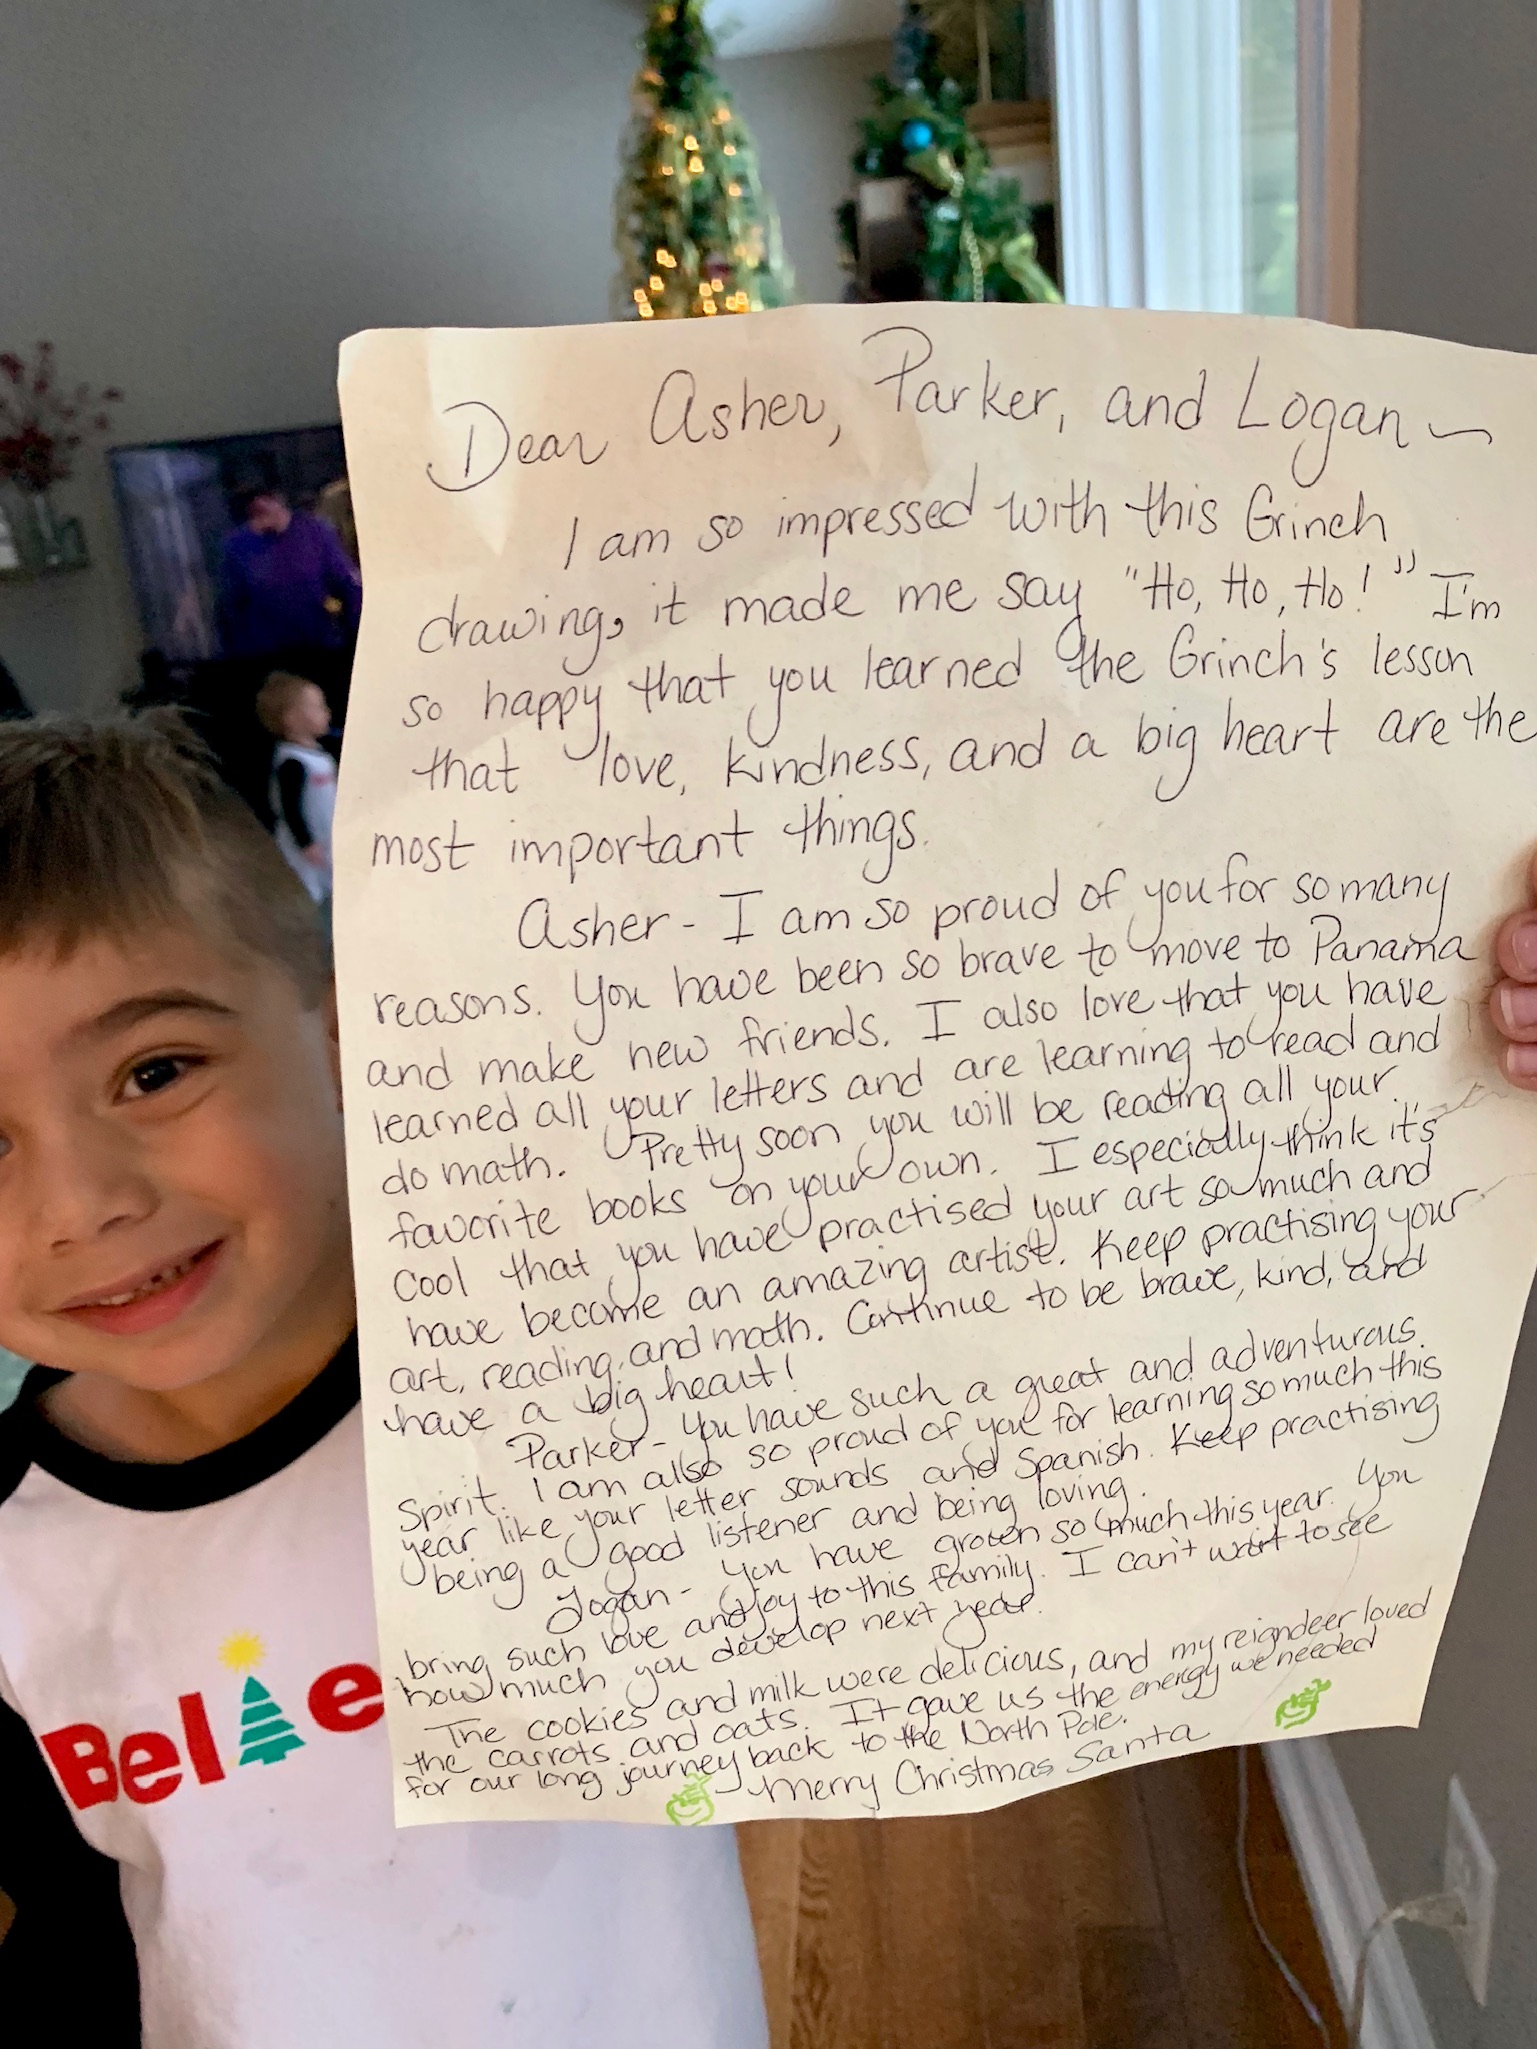 Dear Asher, Parker, and Logan ~
I am so impressed with this Grinch
drawing, it made me say "Ho, Ho, Ho!" I'm
so happy that you learned the Grinch's lesson
that love, kindness, and a big heart are the
most important things.
Asher - I am so proud of you for so many
reasons. You have been so brave to move to Panama
and make new friends. I also love that you have
learned all your letters and are learning to read and
do math. Pretty soon you will be reading all your
favorite books on your own. I especially think it's
cool that you have practised your art so much and
have become an amazing artist. Keep practising your
art, reading, and math. Continue to be brave, kind, and
have a big heart!
Parker - You have such a great and adventurous
spirit. I am also so proud of you for learning so much this
year like your letter sounds and Spanish. Keep practising
being a good listener and being loving.
Logan - You have grown so much this year. You
bring such love and joy to this family. I can't wait to see
how much you develop next year.
The cookies and milk were delicious, and my reigndeer loved
the carrots and oats. It gave us the energy we needed
for our long journey back to the North Pole.
Merry Christmas Santa
Bel e